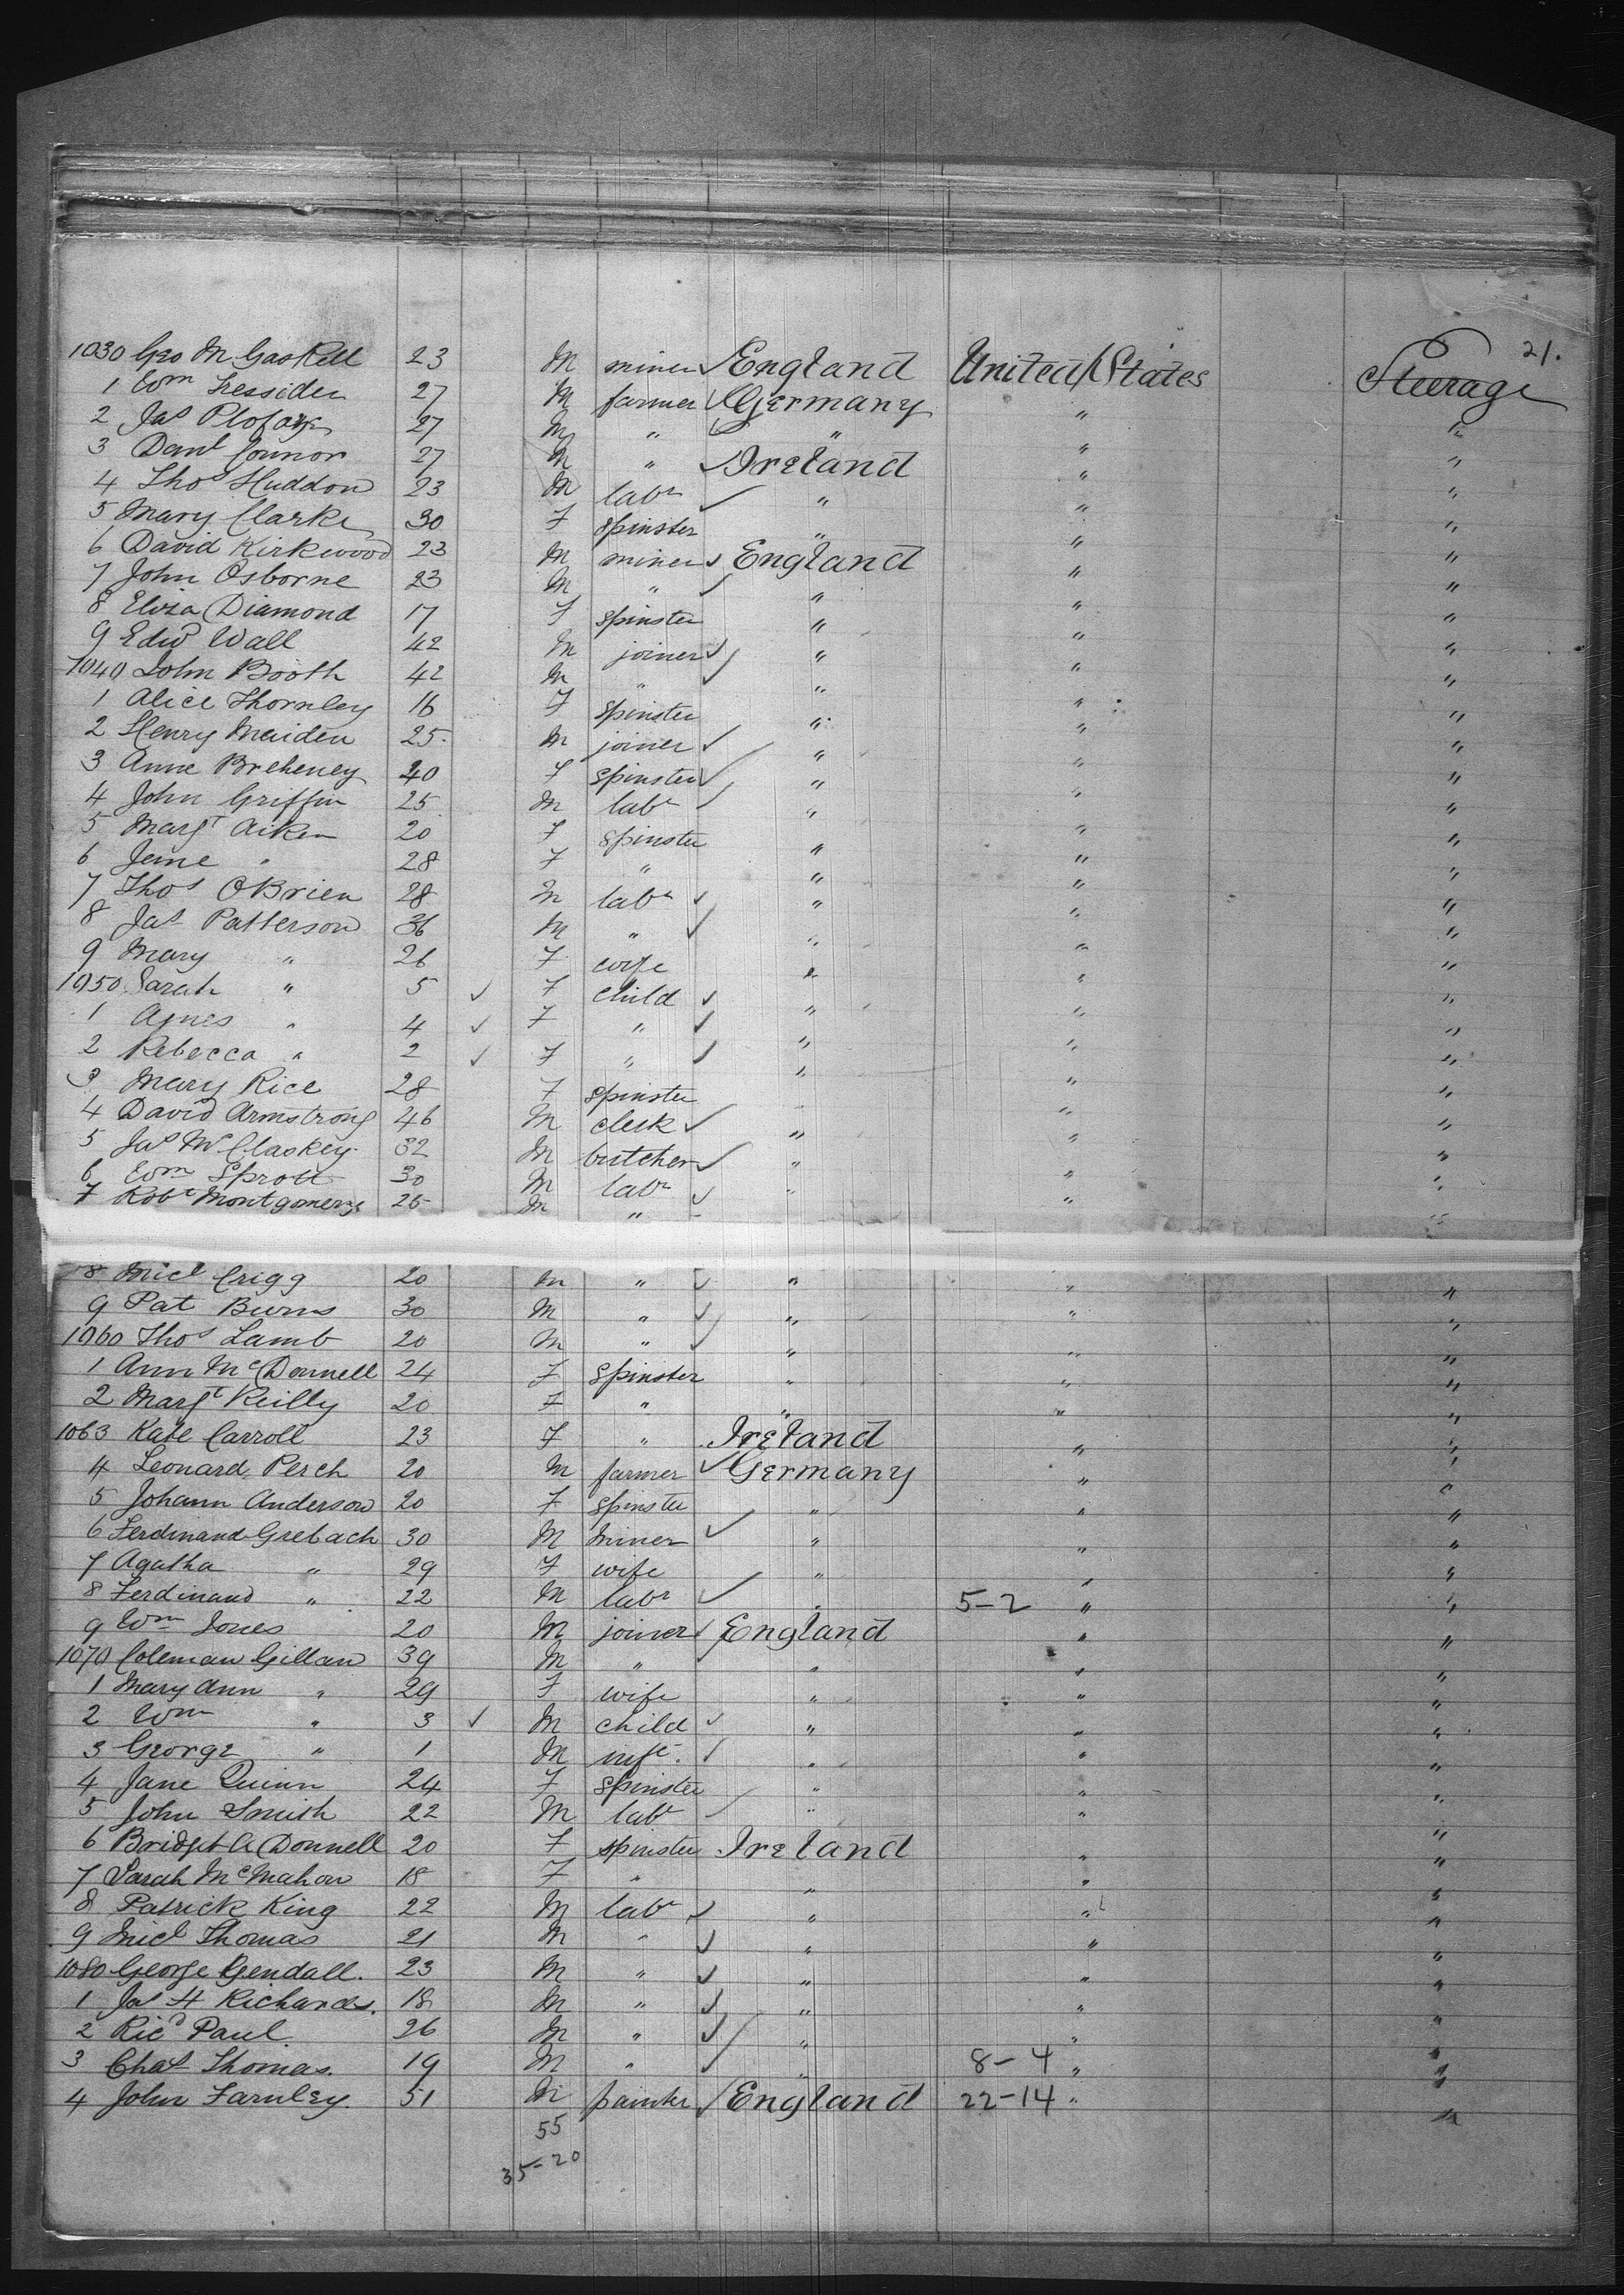 21.
1030 Geo M Gaskell 23 M miner ✓ England United States Steerage
1 Wm Tressider 27 M farmer ✓ Germany " "
2 Jas 27 M " " " "
3 Danl Connor 27 M " ✓ Ireland " "
4 Thos Huddon 23 M labr ✓ " " "
5 Mary Clarke 30 F spinster " " "
6 David Kirkwood 23 M miner ✓ England " "
7 John Osborne 23 M " ✓ " " "
8 Eliza Diamond 17 F spinster " " "
9 Edwd Wall 42 M joiner ✓ " " "
1040 John Booth 42 M " ✓ " " "
1 Alice Thornley 16 F spinster " " "
2 Henry Maiden 25 M joiner ✓ " " "
3 Anne Breheney 40 F spinster ✓ " " "
4 John Griffin 25 M labr ✓ " " "
5 Margt Aiken 20 F spinster " " "
6 Jane " 28 F " " " "
7 Thos OBrien 28 M labr ✓ " " "
8 Jas Patterson 36 M " ✓ " " "
9 Mary " 26 F wife " " "
1050 Sarah " 5 ✓ F child ✓ " " "
1 Agnes " 4 ✓ F " ✓ " " "
2 Rebecca " 2 ✓ F " ✓ " " "
3 Mary Rice 28 F spinster " " "
4 David Armstrong 46 M clerk ✓ " " "
5 Jas McClaskey 32 M butcher ✓ " " "
6 Wm Sprott 30 M labr ✓ " " "
7 Robt Montgomery 25 M " " " "
8 Micl Crigg 20 M " ✓ " " "
9 Pat Burns 30 M " ✓ " " "
1060 Thos Lamb 20 M " ✓ " " "
1 Ann McDonnell 24 F spinster " " "
2 Margt Reilly 20 F " " " "
1063 Kate Carroll 23 F " Ireland " "
4 Leonard Perch 20 M farmer ✓ Germany " "
5 Johann Anderson 20 F spinster " " "
6 Ferdinand Grebach 30 M miner ✓ " " "
7 Agatha " 29 F wife " " "
8 Ferdinand " 22 M labr ✓ " 5-2 " "
9 Wm Jones 20 M joiner ✓ England " "
1070 Coleman Gillan 39 M " ✓ " " "
1 Mary Ann " 29 F wife " " "
2 Wm " 3 ✓ M child ✓ " " "
3 George " 1 M inft. ✓ " " "
4 Jane Quinn 24 F spinster " " "
5 John Smith 22 M labr ✓ " " "
6 Bridget A Donnell 20 F spinster Ireland " "
7 Sarah McMahon 18 F " " " "
8 Patrick King 22 M labr ✓ " " "
9 Micl Thomas 21 M " ✓ " " "
1080 George Gendall. 23 M " ✓ " " "
1 Jas H Richards. 18 M " ✓ " " "
2 Ricd Paul 26 M " ✓ " " "
3 Chas Thomas. 19 M " ✓ " 8-4 " "
4 John Farnley. 51 M painter ✓ England 22-14 " "
55
35-20